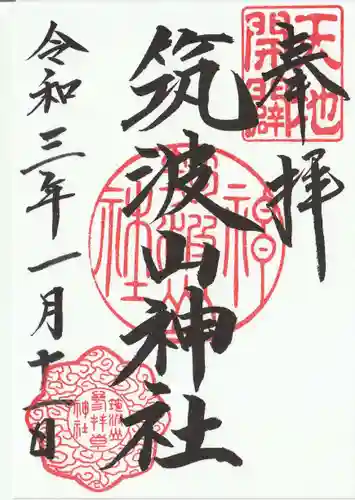 奉拝
天地
開闢
筑波山神社
令和三年一月十一日
筑波山
参拝章
神社